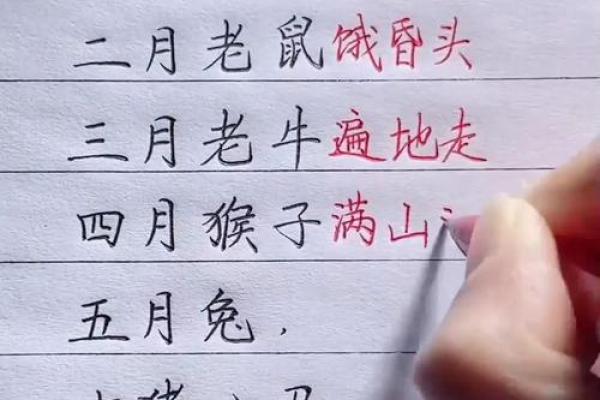 二月老鼠饿昏头
三月老牛遍地走
四月猴子满山
五月兔，